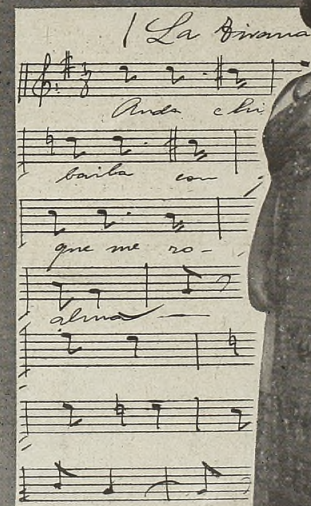 La Tirana
Anda chi
baila con
que me ro-
alma